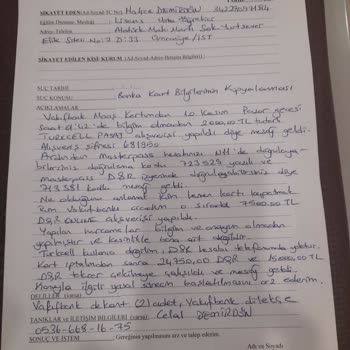 ŞİKAYET EDEN(Ad-Soyad-TC No): Hatice DEMİRDÖN
Eğitim Durumu- Mesleği : Lisans Usta Öğretici
Adres- Telefon : Atatürk Mah. Marti Sok. Yurtsever
Etlik Sitesi No:2 D:33 Ümraniye/İST
ŞİKAYET EDİLEN KİŞİ/ KURUM (Ad-Soyad-Adres-İletişim Bilgileri)
SUÇ TARİHİ :
SUÇ KONUSU : Banka Kart Bilgilerinin Kopyalanması
AÇIKLAMALAR :
Vakıfbank Maaş Kartımdan 10 Kasım Pazar gecesi
saat 01:42'de bilgim olmadan 2000,00 TL tutarlı
TURKCELL PASAJ alışverişi yapıldı diye mesaj geldi.
Alışveriş şifresi 681950
Ardından masterpass hesabınızı N11'de doğrulaya-
bilirsiniz doğrulama kodu 723529 yazıldı ve
masterpass DSR üzerinde doğrulayabilirsiniz diye
713381 kodlu mesaj geldi.
Ne olduğunu anlamadım hemen kartı kapatmak
için Vakıfbankı aradım o sırada 7500,00 TL
DSR ONLINE alışverişi yapıldı.
Yapılan harcamalar bilgim ve onayım olmadan
yapılmıştır ve kesinlikle bana ait değildir.
Turkcell kullanıcısı değilim, DSR hesabı telefonumda yoktur.
Kart iptalinden sonra 24,750,00 DSR ve 15000,00 TL
DSR tekrar çekilmeye çalışıldı ve mesaj geldi.
Konuyla ilgili yasal sürecin başlatılmasını arz ederim.
DELİLLER (varsa) :
Vakıfbank dekont (2) adet, Vakıfbank dilekçe
TANIKLAR ve İLETİŞİM BİLGİLERİ (varsa) : Celal DEMİRDÖN
0536-668-16-75
SONUÇ VE İSTEM : Gereğinin yapılmasını arz ve talep ederim.
Adı ve Soyadı